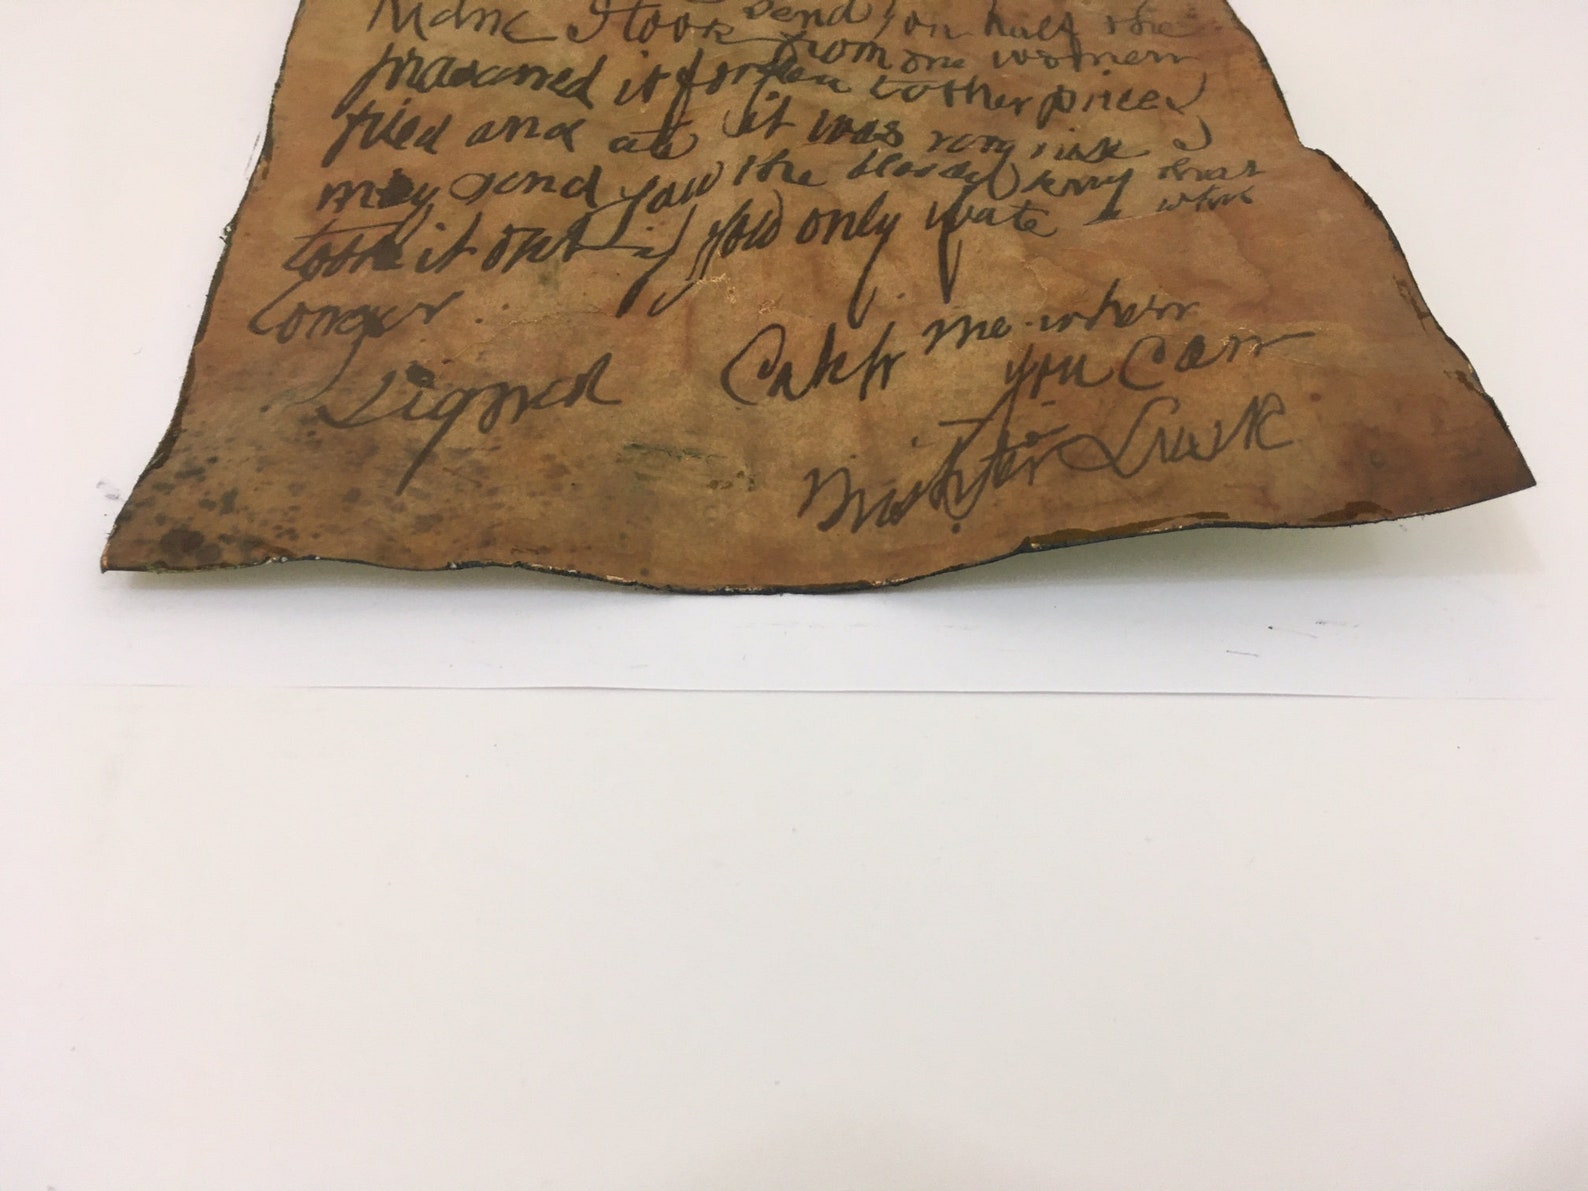 Kidne I took send you half the
from one women
prasarved it for you tother piece I
fried and ate it was very nise I
may send you the bloody knif that
took it out if you only wate a whil
longer
Signed Catch me when
you Can
Mishter Lusk